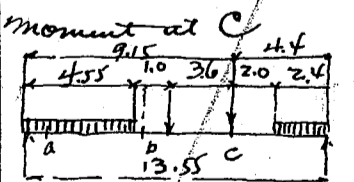 Moment at C
9.15 4.4
4.55 1.0 3.6 2.0 2.4
a b c
13.55